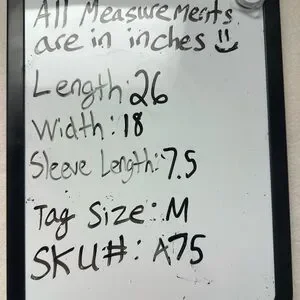 All Measurements
are in inches
Length: 26
Width: 18
Sleeve Length: 7.5
Tag Size: M
SKU#: A75